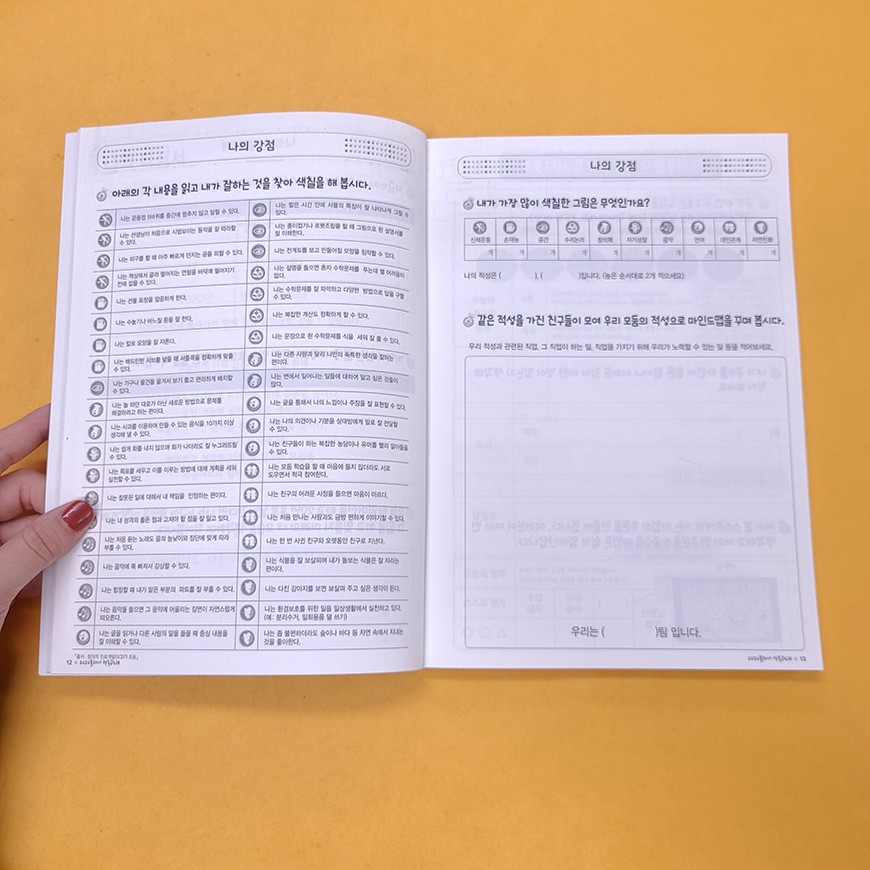 나의 강점
아래의 각 내용을 읽고 내가 잘하는 것을 찾아 색칠을 해 봅시다.
나는 운동장 5바퀴를 중간에 멈추지 않고 달릴 수 있다.
나는 선생님이 처음으로 시범보이는 동작을 잘 따라할
수 있다.
나는 피구를 할 때 아주 빠르게 던지는 공을 피할 수 있다.
나는 책상에서 굴러 떨어지는 연필을 바닥에 떨어지기
전에 잡을 수 있다.
나는 선물 포장을 깔끔하게 한다.
나는 수놓기나 바느질 등을 잘 한다.
나는 칼로 모양을 잘 자른다.
나는 배드민턴 서브를 넣을 때 셔틀콕을 정확하게 맞출
수 있다.
나는 가구나 물건을 옮겨서 보기 좋고 편리하게 배치할
수 있다.
나는 늘 하던 대로가 아닌 새로운 방법으로 문제를
해결하려고 하는 편이다.
나는 사과를 이용하여 만들 수 있는 음식을 10가지 이상
생각해 낼 수 있다.
나는 쉽게 화를 내지 않으며 화가 나더라도 잘 누그러뜨릴
수 있다.
나는 목표를 세우고 이를 이루는 방법에 대해 계획을 세워
실천할 수 있다.
나는 잘못된 일에 대해서 내 책임을 인정하는 편이다.
나는 내 성격의 좋은 점과 고쳐야 할 점을 잘 알고 있다.
나는 처음 듣는 노래도 음의 높낮이와 장단에 맞게 따라
부를 수 있다.
나는 음악에 푹 빠져서 감상할 수 있다.
나는 합창할 때 내가 맡은 부분의 파트를 잘 부를 수 있다.
나는 음악을 들으면 그 음악에 어울리는 장면이 자연스럽게
떠오른다.
나는 글을 읽거나 다른 사람의 말을 들을 때 중심 내용을
잘 이해할 수 있다.
나는 짧은 시간 안에 사물의 특징이 잘 나타나게 그릴 수
있다.
나는 종이접기나 로봇조립을 할 때 그림으로 된 설명서를
잘 이해한다.
나는 전개도를 보고 만들어질 모양을 짐작할 수 있다.
나는 설명을 들으면 혼자 수학문제를 푸는데 별 어려움이
없다.
나는 수학문제를 잘 파악하고 다양한 방법으로 답을 구할
수 있다.
나는 복잡한 계산도 정확하게 할 수 있다.
나는 문장으로 된 수학문제를 식을 세워 잘 풀 수 있다.
나는 다른 사람과 달리 나만의 독특한 생각을 잘하는
편이다.
나는 변에서 일어나는 일들에 대하여 알고 싶은 것들이
많다.
나는 글을 통해서 나의 느낌이나 주장을 잘 표현할 수 있다.
나는 나의 의견이나 기분을 상대방에게 말로 잘 전달할
수 있다.
나는 친구들이 하는 복잡한 농담이나 유머를 빨리 알아들을
수 있다.
나는 모둠 학습을 할 때 마음에 들지 않더라도 서로
도우면서 적극 참여한다.
나는 친구의 어려운 사정을 들으면 마음이 아프다.
나는 처음 만나는 사람과도 금방 편하게 이야기할 수 있다.
나는 한 번 사귄 친구와 오랫동안 친구로 지낸다.
나는 식물을 잘 보살피며 내가 돌보는 식물은 잘 자라는
편이다.
나는 다친 강아지를 보면 보살펴 주고 싶은 생각이 든다.
나는 환경보호를 위한 일을 일상생활에서 실천하고 있다.
(예: 분리수거, 일회용품 덜 쓰기)
나는 좀 불편하더라도 숲이나 바다 등 자연 속에서 지내는
것을 좋아한다.
12
나의 강점
내가 가장 많이 색칠한 그림은 무엇인가요?
신체운동 손재능 공간 수리논리 창의력 자기성찰 음악 언어 대인관계 자연친화
개 개 개 개 개 개 개 개 개 개
나의 적성은 ( ), ( )입니다. (높은 순서대로 2개 적으세요)
같은 적성을 가진 친구들이 모여 우리 모둠의 적성으로 마인드맵을 꾸며 봅시다.
우리 적성과 관련된 직업, 그 직업이 하는 일, 직업을 가지기 위해 우리가 노력할 수 있는 일 등을 적어보세요.
우리는 ( )팀 입니다.
13